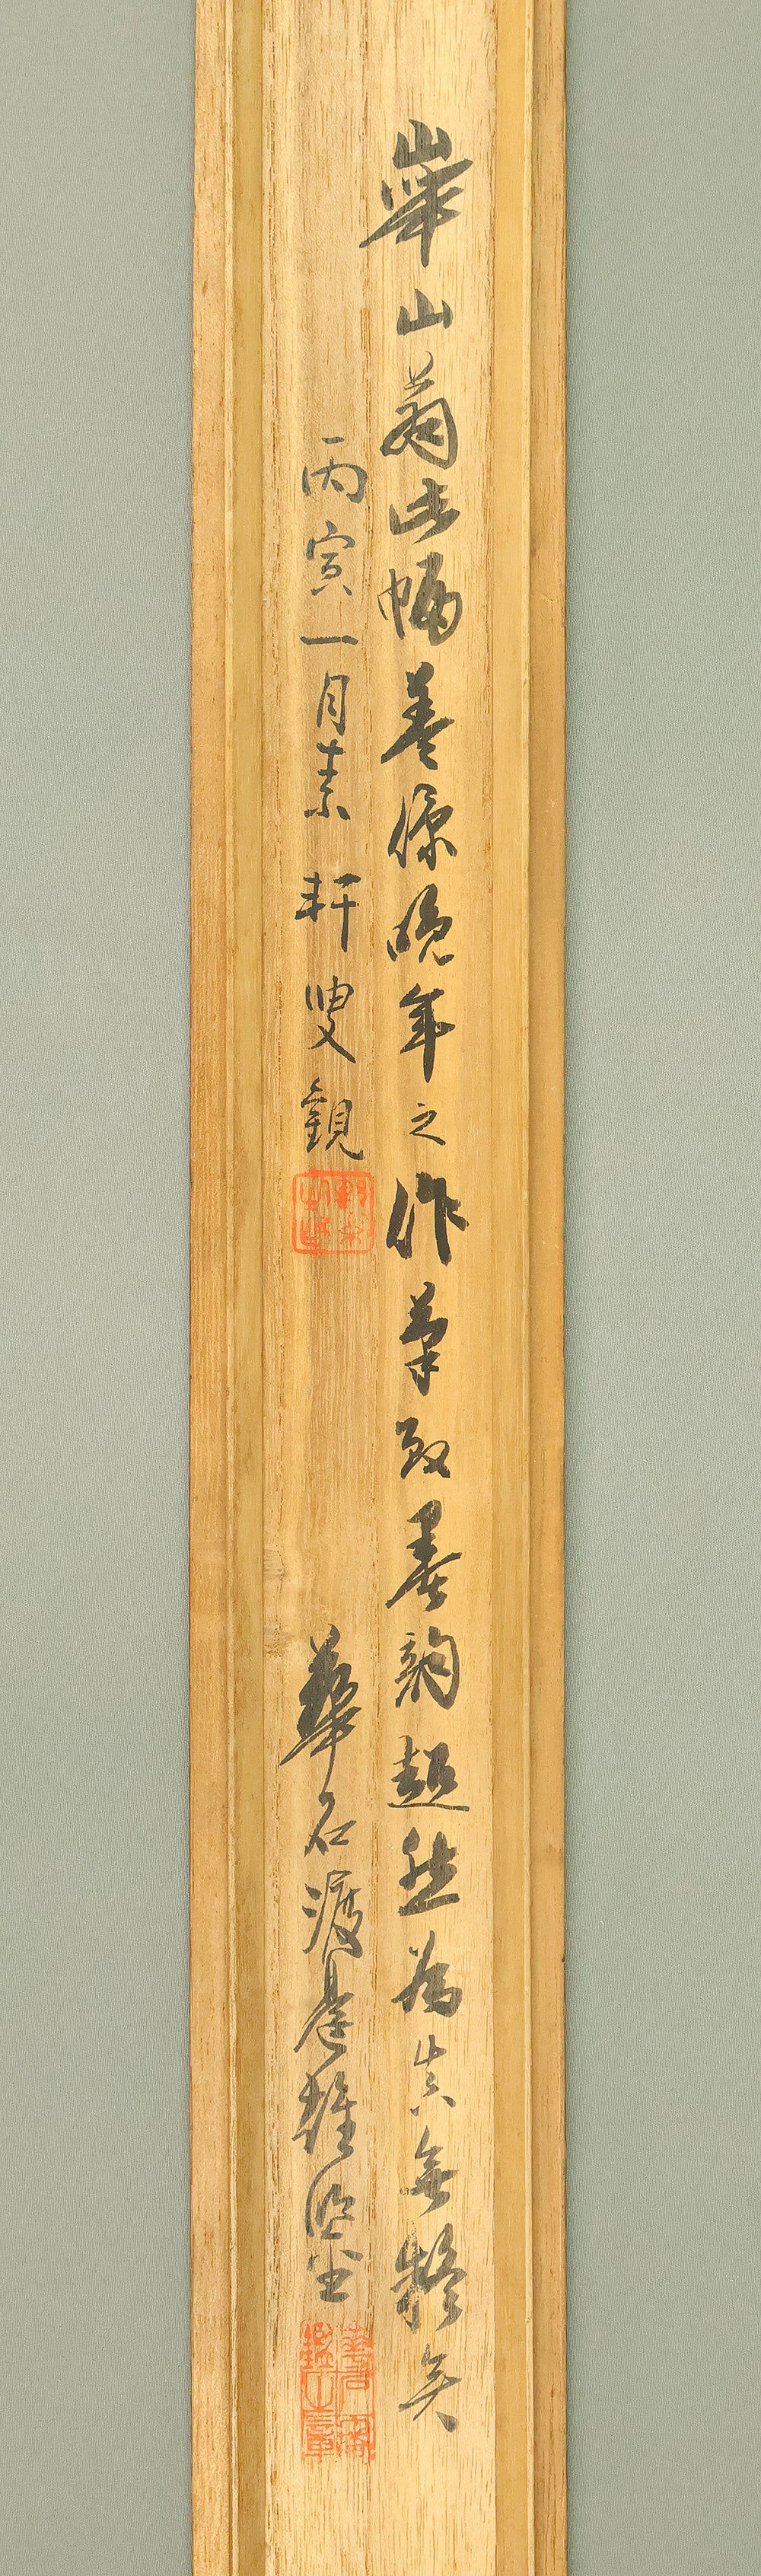 崋山翁此幅蓋係晩年之作筆致墨韻超然為真無疑矣
丙寅一月素軒叟觀
華石渡邊雄鑒